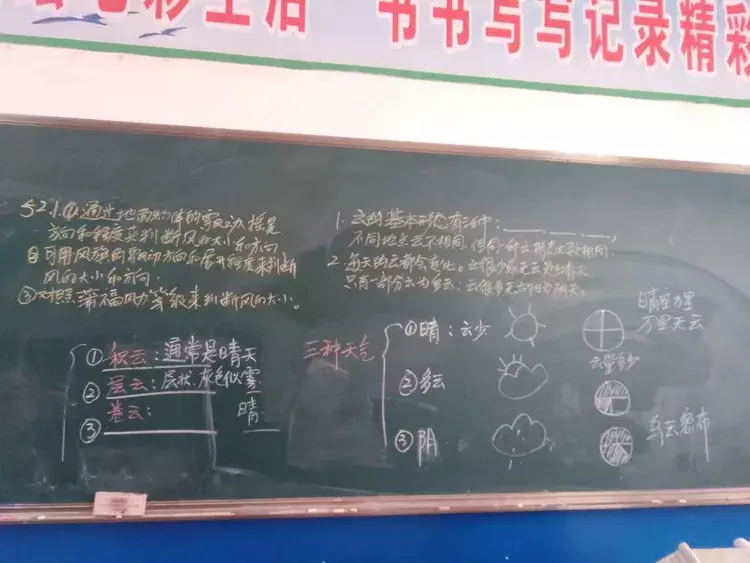 七彩生活 书书写写记录精彩
§2.1.①通过地面物体的飘动、摇晃
方向和程度来判断风的大小和方向
②可用风旗的飘动方向和展开程度来判断
风的大小和方向.
③对照蒲福风力等级来判断风的大小。
1. 云的基本形态有三种:
不同地点云不相同,但同一种云形态大致相同.
2. 每天的云都会变化。云很少或无云为晴天
只有一部分云为多云;云很多无太阳为阴天。
①积云:通常是晴天
②层云:层状.灰色似雾
卷云: 晴
③
三种天气
①晴:云少
晴空万里
万里无云
云量多少
②多云
③阴
乌云密布